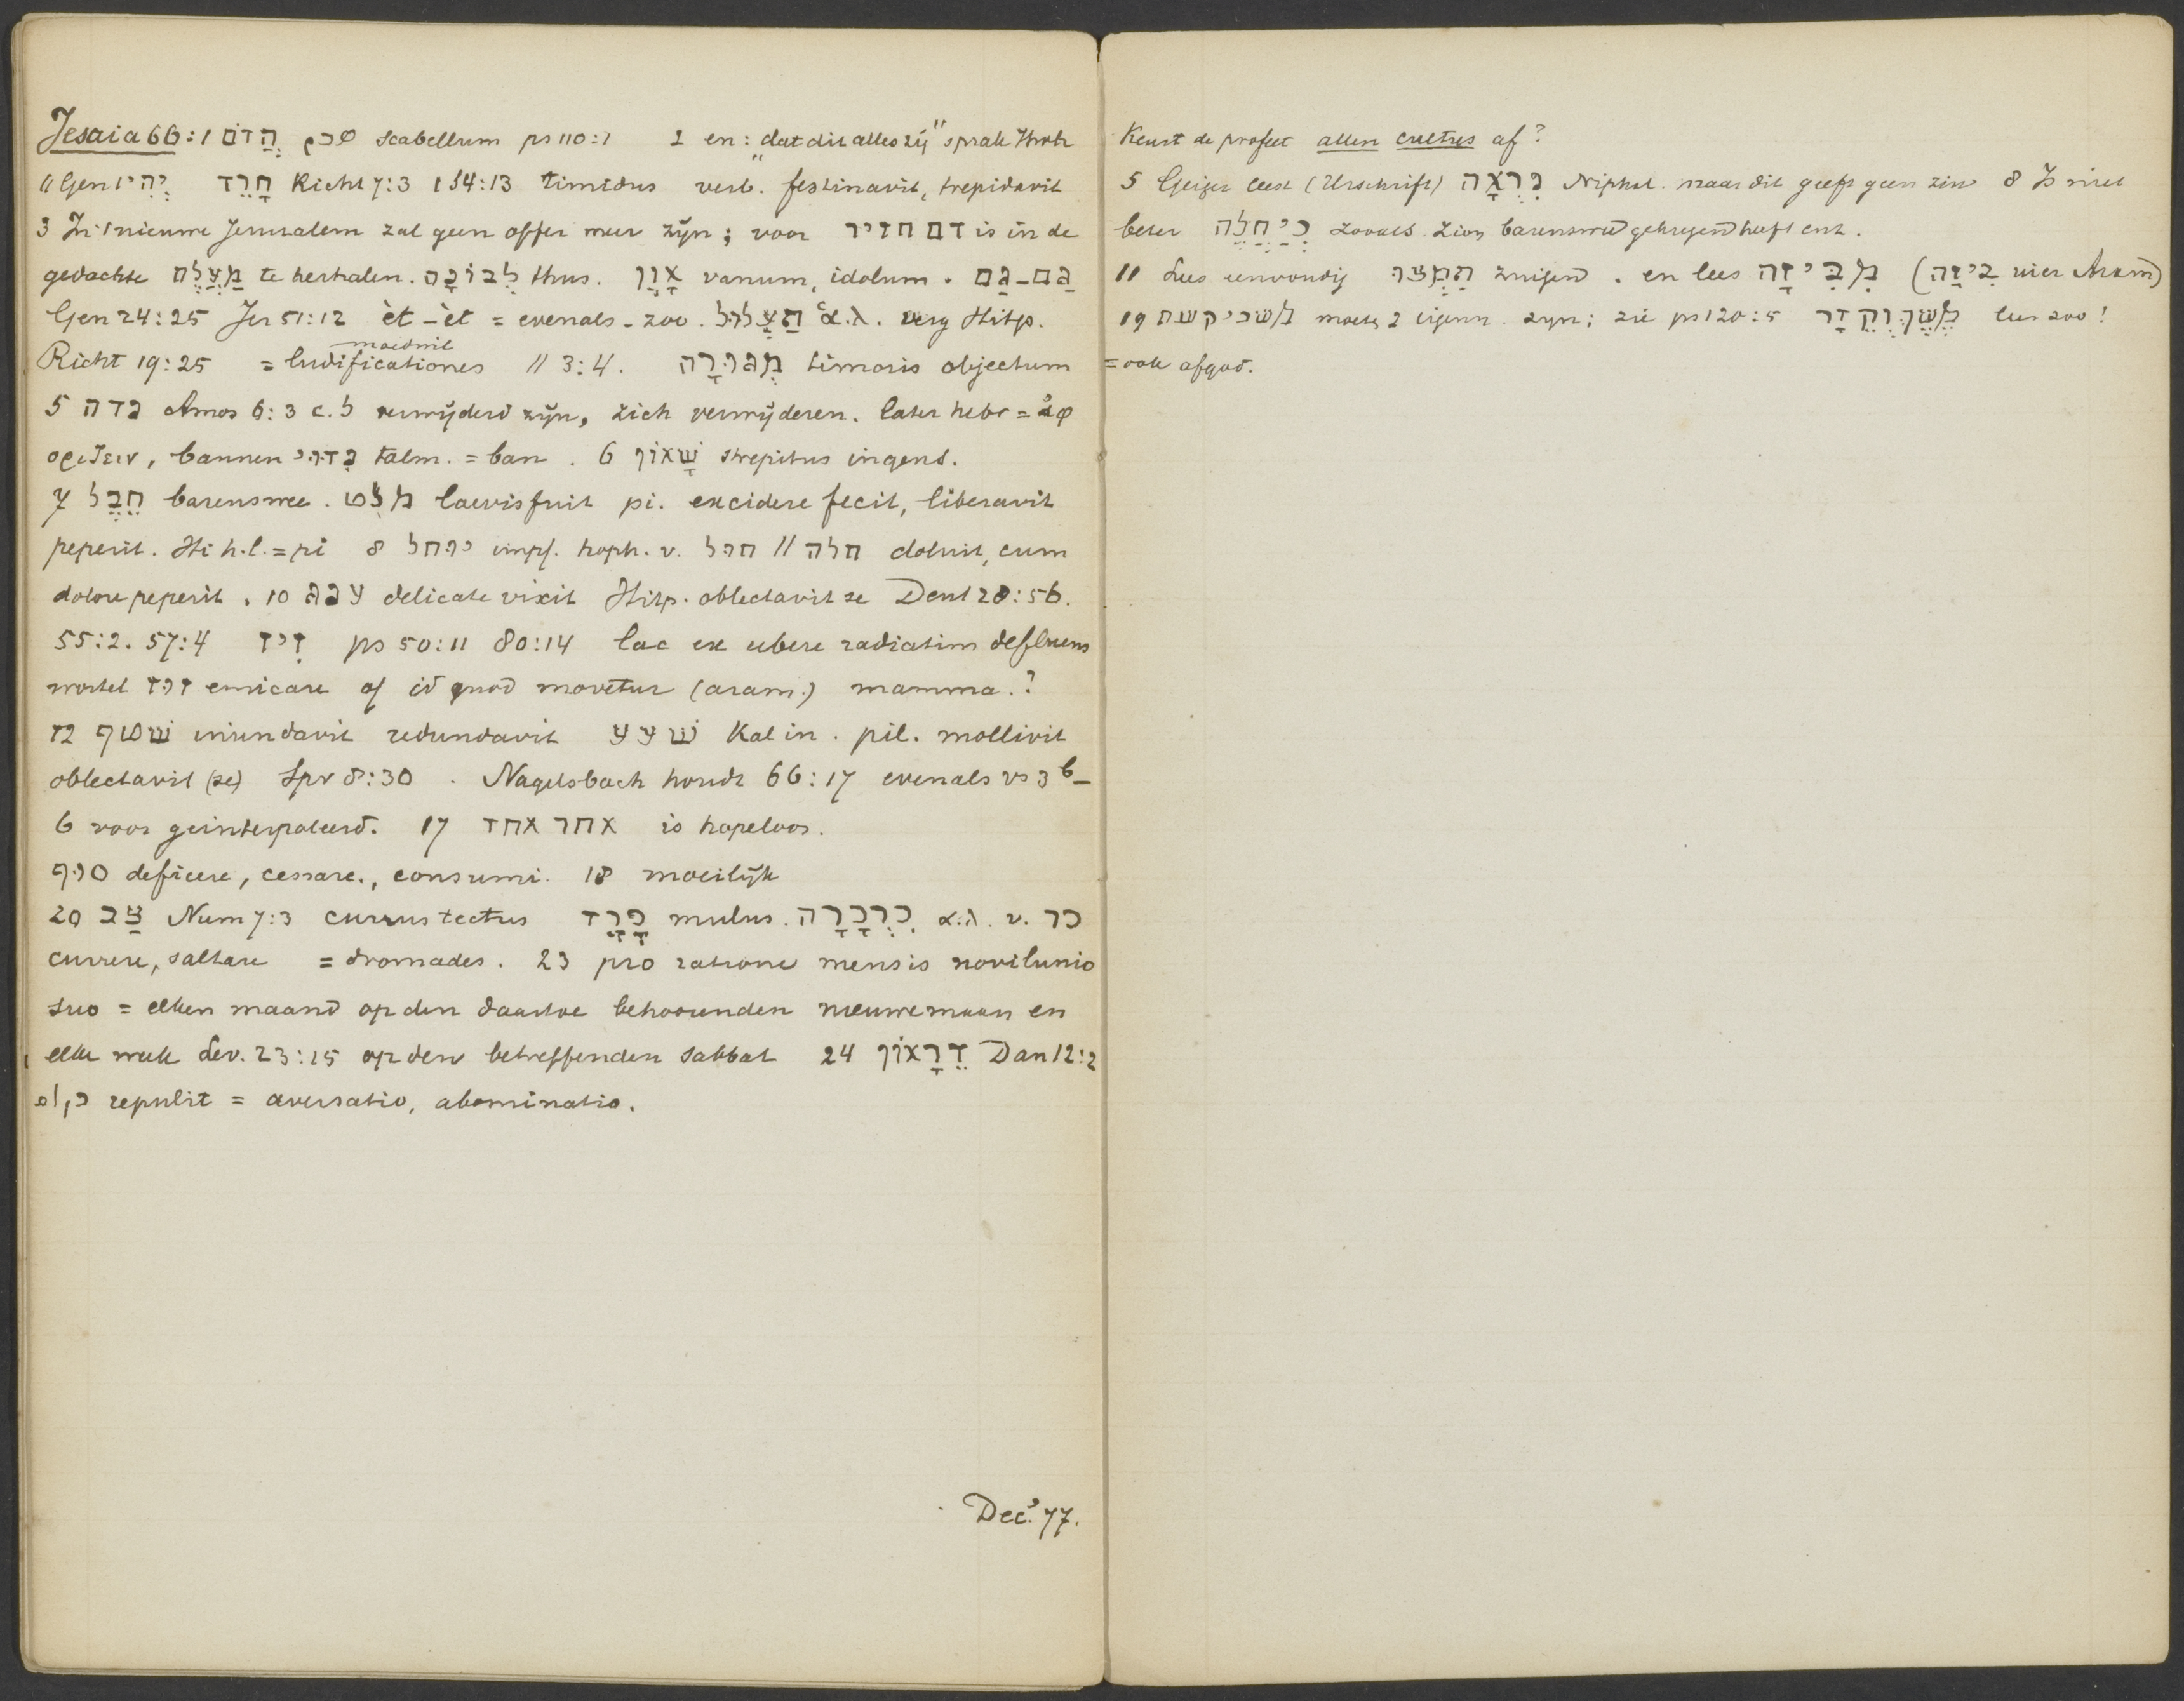 Jesaia 66:1 הֲדֹם שכם scabellum ps 110:1 2 en: „dat dit alles zij" sprak Jhvh
// Gen 1 יְהִי חָרֵד Richt 7:3 1 S 4:13 timidus verb. festinavit, trepidavit
3 In 't nieuwe Jerusalem zal geen offer meer zijn; voor דם חזיר is in de
gedachte מַעֲלֶה te herhalen. לְבוֹנָה thus. אָוֶן vanum, idolum. גַּם–גַּם
Gen 24:25 Jer 51:12 èt–èt = evenals–zoo. תַּעֲלוּל ἅ.λ. verg Hitp.
Richt 19:25 = moedwil ludificationes // 3:4. מְגוּרָה timoris objectum
5 נדה Amos 6:3 c. ל verwijderd zijn, zich verwijderen. later hebr = ἀφ
οριζειν, bannen נִדּוּי talm. = ban. 6 שָׁאוֹן strepitus ingens.
7 חֵבֶל barenswee. מלט laevis fuit pi. excidere fecit, liberavit
peperit. Hi h.l. = pi 8 יוחל impf. hoph. v. חול // חלה doluit, cum
dolore peperit. 10 ענג delicate vixit Hitp. oblectavit se Deut 28:56.
55:2. 57:4 זִיז ps 50:11 80:14 lac ex ubere radiatim defluens
wortel זוז emicare of id quod movetur (aram.) mamma.?
12 שׁטף inundavit redundavit שׁעע Kal in. pil. mollivit
oblectavit (se) Spr 8:30. Nagelsbach houdt 66:17 evenals vs 3 b–
6 voor geinterpoleerd. 17 אחר אחד is hopeloos.
סוף deficere, cessare, consumi. 18 moeilijk
20 צַב Num 7:3 currus tectus פֶּרֶד mulus. כִּרְכָּרָה ἁ.λ. v. כר
currere, saltare = dromades. 23 pro ratione mensis novilunio
suo = elken maand op den daartoe behoorenden nieuwemaan en
elke week Lev. 23:15 op den betreffenden sabbat 24 דֵּרָאוֹן Dan 12:2
repulit = aversatio, abominatio.
Dec. '77.
Keurt de profeet allen cultus af?
5 Geiger leest (Urschrift) נִרְאָה Niphal. maar dit geeft geen zin 8 Is niet
beter כִּי חֲלָה zooals Zion barenswee gekregen heeft enz.
11 Lees eenvoudig תָּמֹצּוּ zuigen. en lees מִבִּיזָה (בִּיזָה uier Aram)
19 משכי קשת moeten 2 eigenn. zijn; zie ps 120:5 מֶשֶׁךְ וְקֵדָר lees zoo!
= ook afgod.